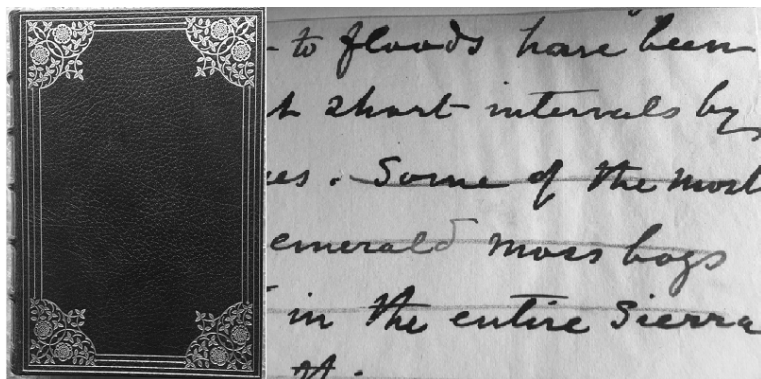 - to floods have been
short intervals by
es. Some of the most
emerald moss bogs
in the entire Sierra